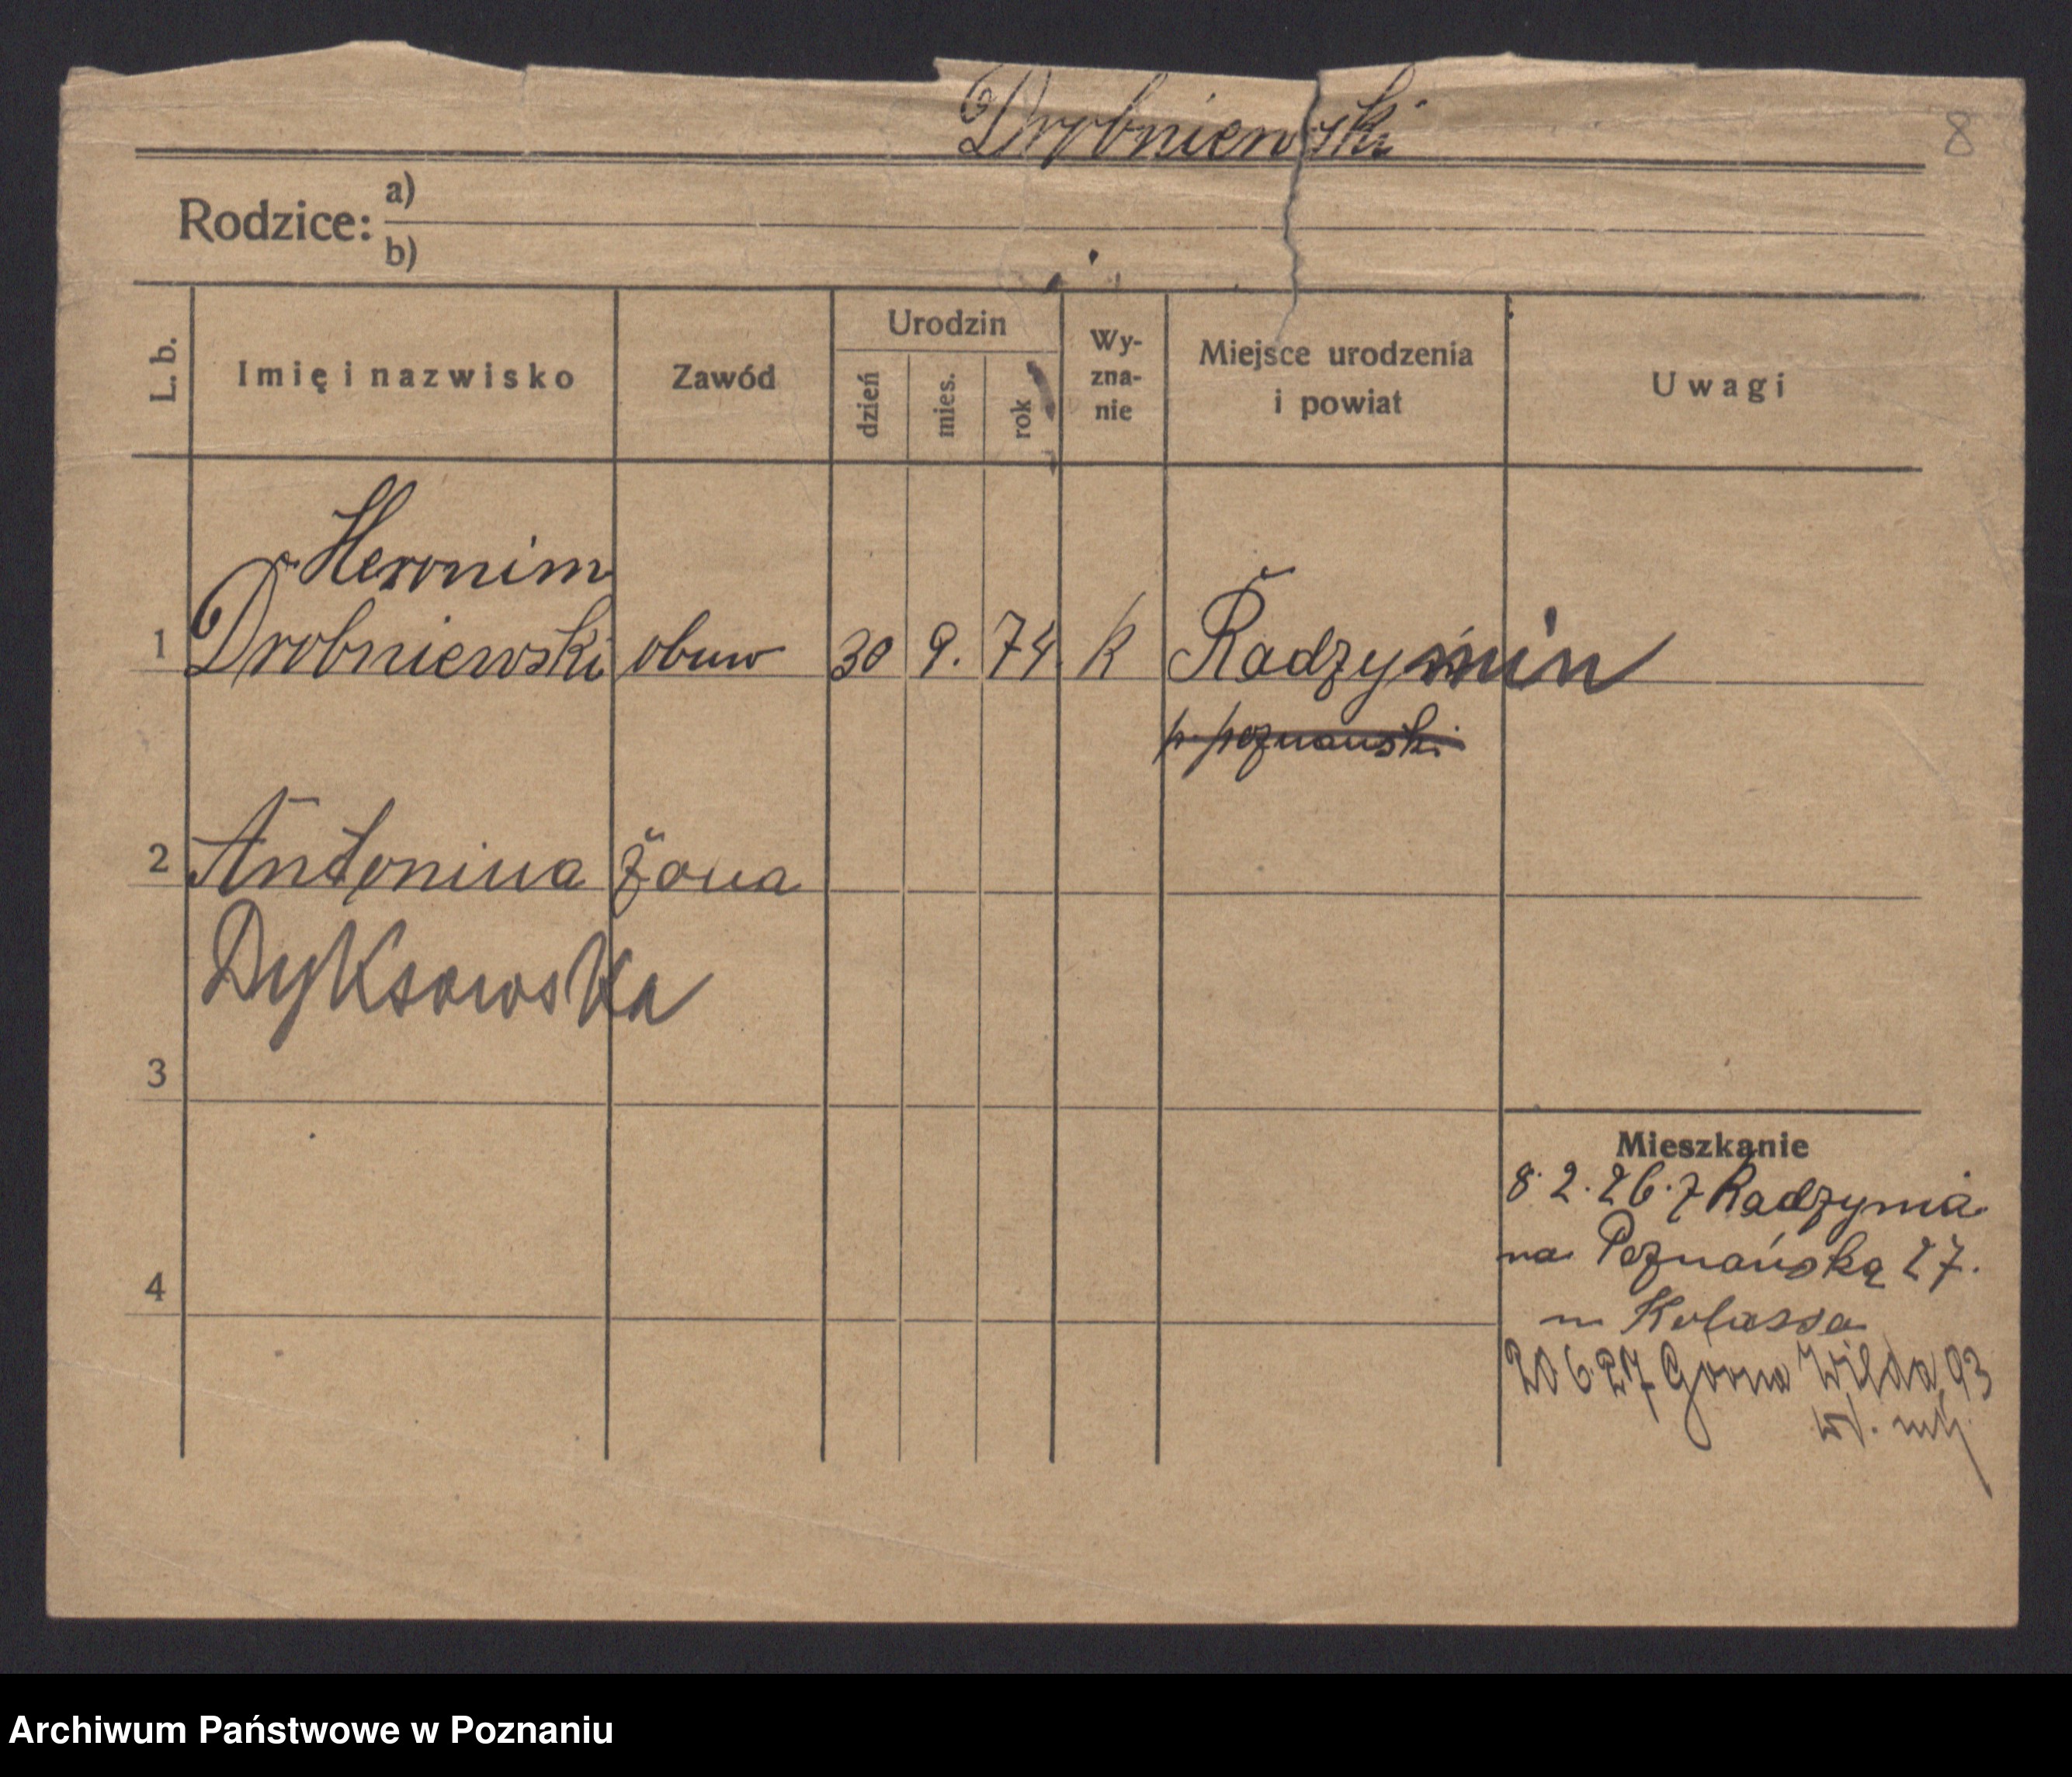 Drobniewski
8
Rodzice: a)
b)
L. b.
Imię i nazwisko
Zawód
Urodzin
dzień
mies.
rok
Wy-
zna-
nie
Miejsce urodzenia
i powiat
Uwagi
Heronim
1 Drobniewski obuw 30 9. 74. k Radzymin
p. poznański
2 Antonina żona
Dyksowska
3
4
Mieszkanie
8. 2. 26. z Radzymia
na Poznańską 27.
u Kolassa
20 6 27 Górna Wilda 93
Archiwum Państwowe w Poznaniu